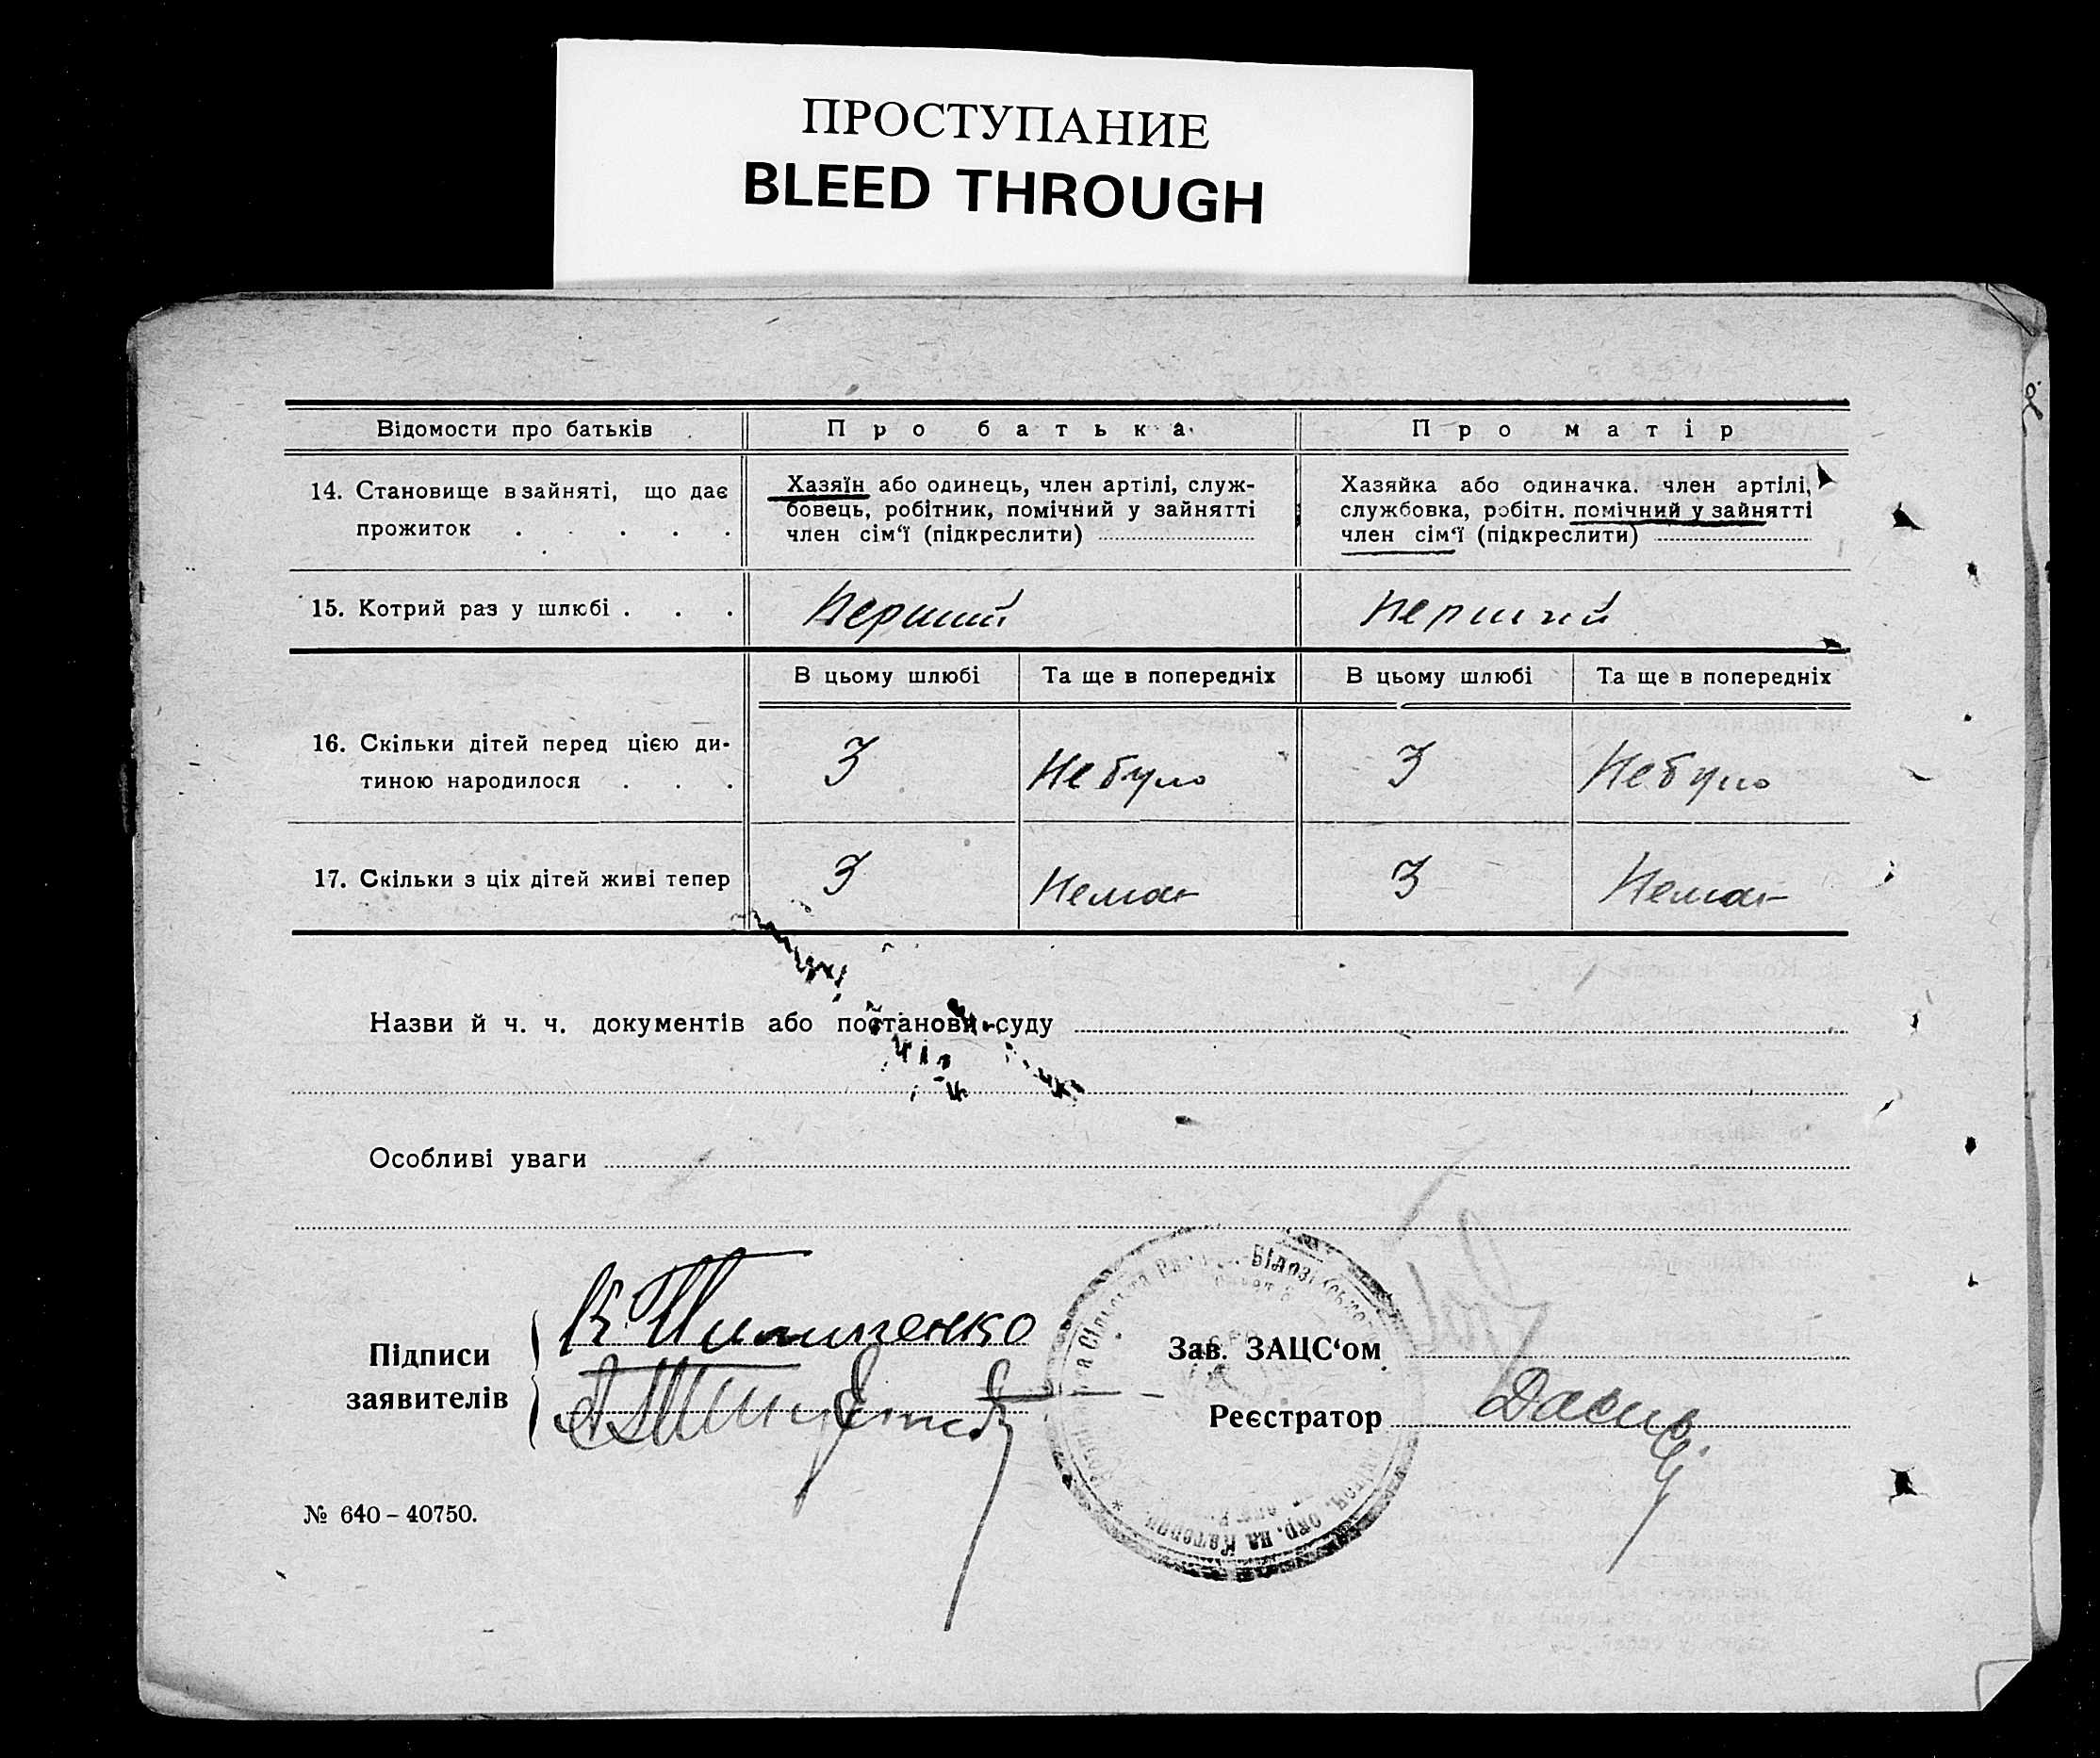 ПРОСТУПАНИЕ
BLEED THROUGH
Відомости про батьків
Про батька
Про матір
14. Становище в зайняті, що дає
прожиток . . . . .
Хазяїн або одинець, член артілі, служ-
бовець, робітник, помічний у зайнятті
член сім‘ї (підкреслити)
Хазяйка або одиначка. член артілі,
службовка, робітн. помічний у зайнятті
член сім‘ї (підкреслити)
15. Котрий раз у шлюбі . . .
Перший
Перший
В цьому шлюбі
Та ще в попередніх
В цьому шлюбі
Та ще в попередніх
16. Скільки дітей перед цією ди-
тиною народилося . . .
3
Небуло
3
Небуло
17. Скільки з ціх дітей живі тепер
3
Немає
3
Немає
Назви й ч. ч. документів або постанови суду
Особливі уваги
Підписи
заявителів
Зав. ЗАЦС‘ом
Реєстратор
№ 640 – 40750.